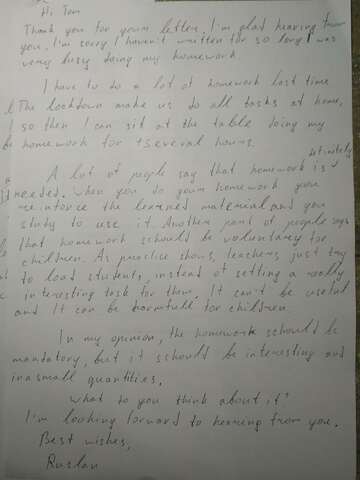 Hi, Tom
Thank you for your letter. I'm glad hearing from
you. I'm sorry I haven't written for so long I was
very busy doing my homework
I have to do a lot of homework last time
The lockdown make us do all tasks at home,
so then I can sit at the table doing my
homework for several hours.
A lot of people say that homework is definitely
needed. When you do your homework you
reinforce the learned material and you
study to use it. Another part of people says
that homework schould be voluntary for
children. As practice shows, teachers just try
to load students, instead of setting a really
interesting task for them. It can't be useful
and It can be harmfull for children
In my opinion, the homework schould be
mandatory, but it schould be interesting and
in a small quantities.
What do you think about it?
I'm looking forward to hearing from you.
Best wishes,
Ruslan